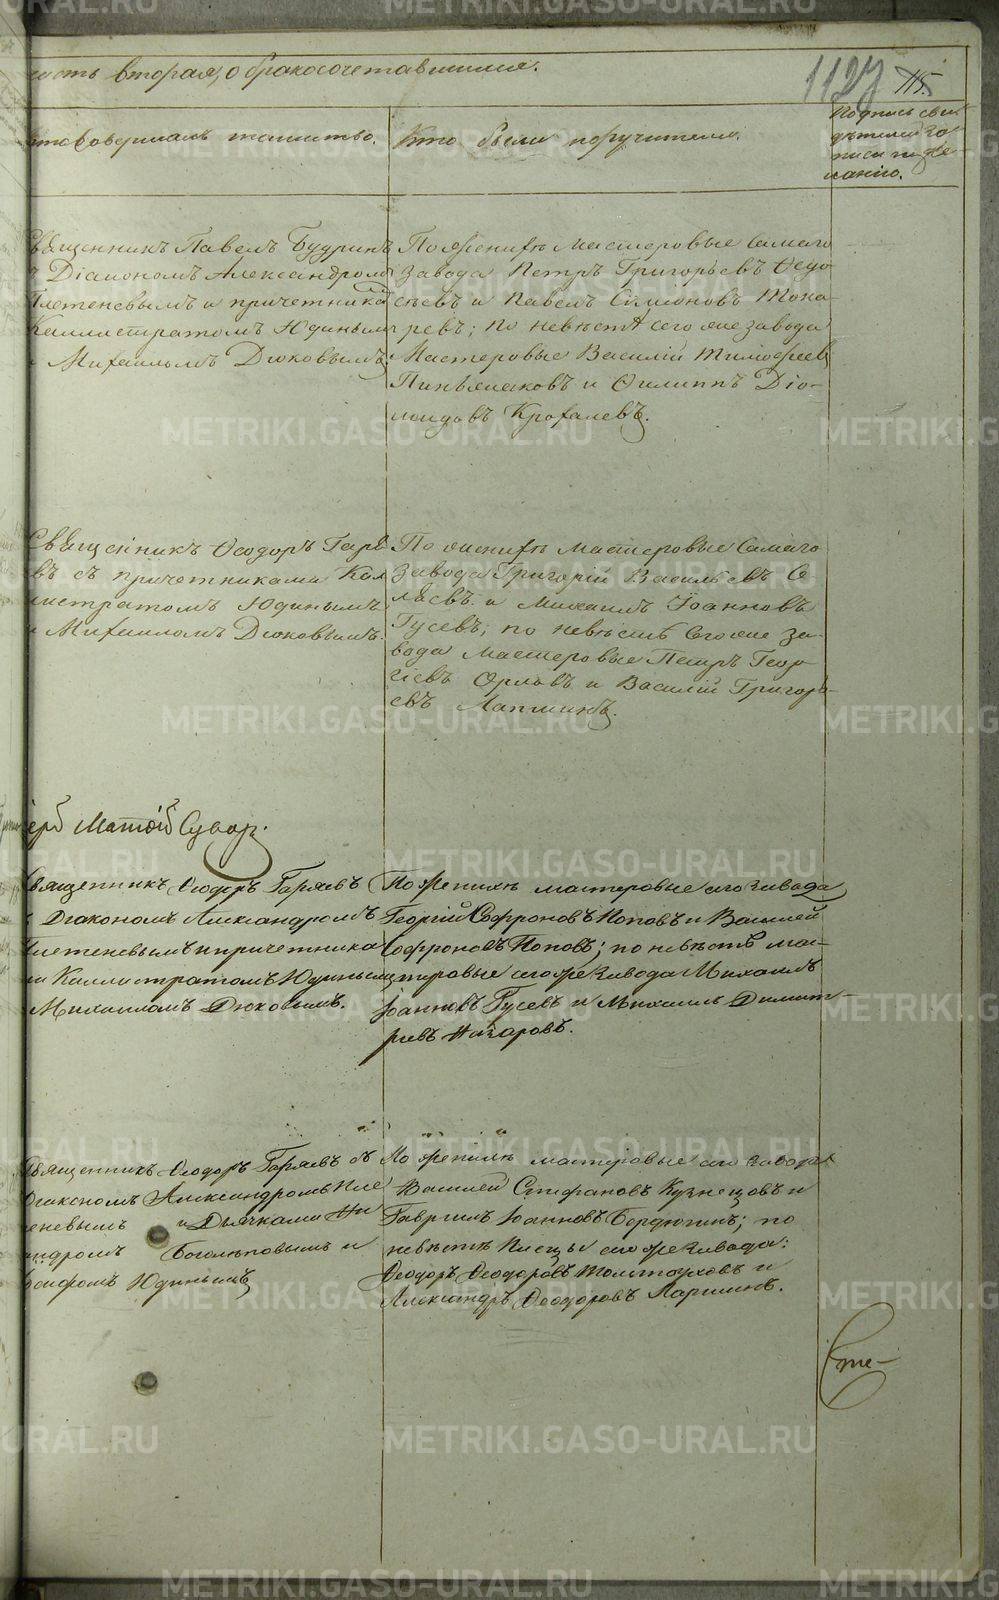 часть вторая, о бракосочетавшихся.
1127 115.
Кто совершалъ таинство.
Кто были поручители.
Подпись сви-
детелей за-
писи по же-
ланію.
Священникъ Павелъ Будринъ
съ Діакономъ Александромъ
Плетеневымъ и причетниками
Каллистратомъ Юдинымъ
и Михаиломъ Дюковымъ
По женихѣ Мастеровые самаго
завода Петръ Григорьевъ Ѳедо
сѣевъ и Павелъ Симіоновъ Тока
ревъ; по невѣстѣ сего же завода
Мастеровые Василій Тимофеев
Пиньжаковъ и Филиппъ Діо-
мидовъ Крохалевъ.
Священникъ Ѳеодоръ Гаря
въ съ причетниками Кал
листратомъ Юдинымъ
и Михаиломъ Дюковымъ.
По женихѣ Мастеровые самаго
завода Григорій Васильевъ
и Михаилъ Іоанновъ
Гусевъ; по невѣстѣ сего же за-
вода Мастеровые Петръ Геор
гіевъ Орловъ и Василій Григорь-
евъ Лапшинъ.
ерей Матѳій Сувор.
Священникъ Ѳеодоръ Гаряевъ
съ Діакономъ Александромъ
Плетеневымъ и причетника
ми Каллистратомъ Юдинымъ
Михаиломъ Дюковымъ.
По женихѣ мастеровые сего завода
Георгій Софроновъ Поповъ и Василей
Софроновъ Поповъ; по невѣстѣ ма-
стеровые сего же завода Михаилъ
Іоанновъ Гусевъ и Михаилъ Димит-
ріевъ Назаровъ.
Священникъ Ѳеодоръ Гаряевъ съ
Діакономъ Александромъ Пле
теневымъ и Дьячками Ни
андромъ Боголѣповымъ и
Юдинымъ
По женихѣ мастеровые сего завода
Василей Стефановъ Кузнецовъ и
Гавріилъ Іоанновъ Бердюгинъ; по
невѣстѣ Писцы сего же завода:
Ѳеодоръ Ѳеодоровъ Толстоуховъ и
Александръ Ѳеодоровъ Ларшинъ.
METRIKI.GASO-URAL.RU